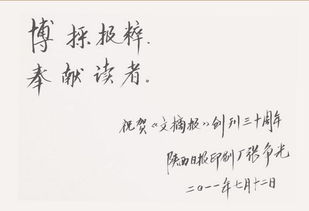 博採报粹.
奉献读者。
祝贺《文摘报》创刊三十周年
陕西日报印刷厂张争光
二〇一一年七月十二日